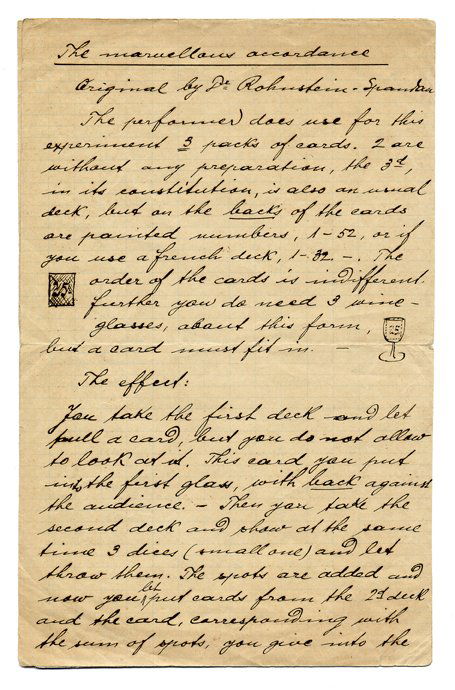 The marvellous accordance
Original by Dr Rohnstein - Spandau
The performer does use for this
experiment 3 packs of cards. 2 are
without any preparation, the 3d,
in its constitution, is also an usual
deck, but on the backs of the cards
are painted numbers, 1-52, or if
you use a french deck, 1-32 -. The
order of the cards is indifferent.
25
further you do need 3 wine-
glasses, about this form,
25
but a card must fit in. -
The effect:
You take the first deck and let
pull a card, but you do not allow
to look at it. This card you put
into the first glass, with back against
the audience. - Then you take the
second deck and show at the same
time 3 dices (small one) and let
throw them. The spots are added and
now you let put cards from the 2d deck
and the card, corresponding with
the sum of spots, you give into the